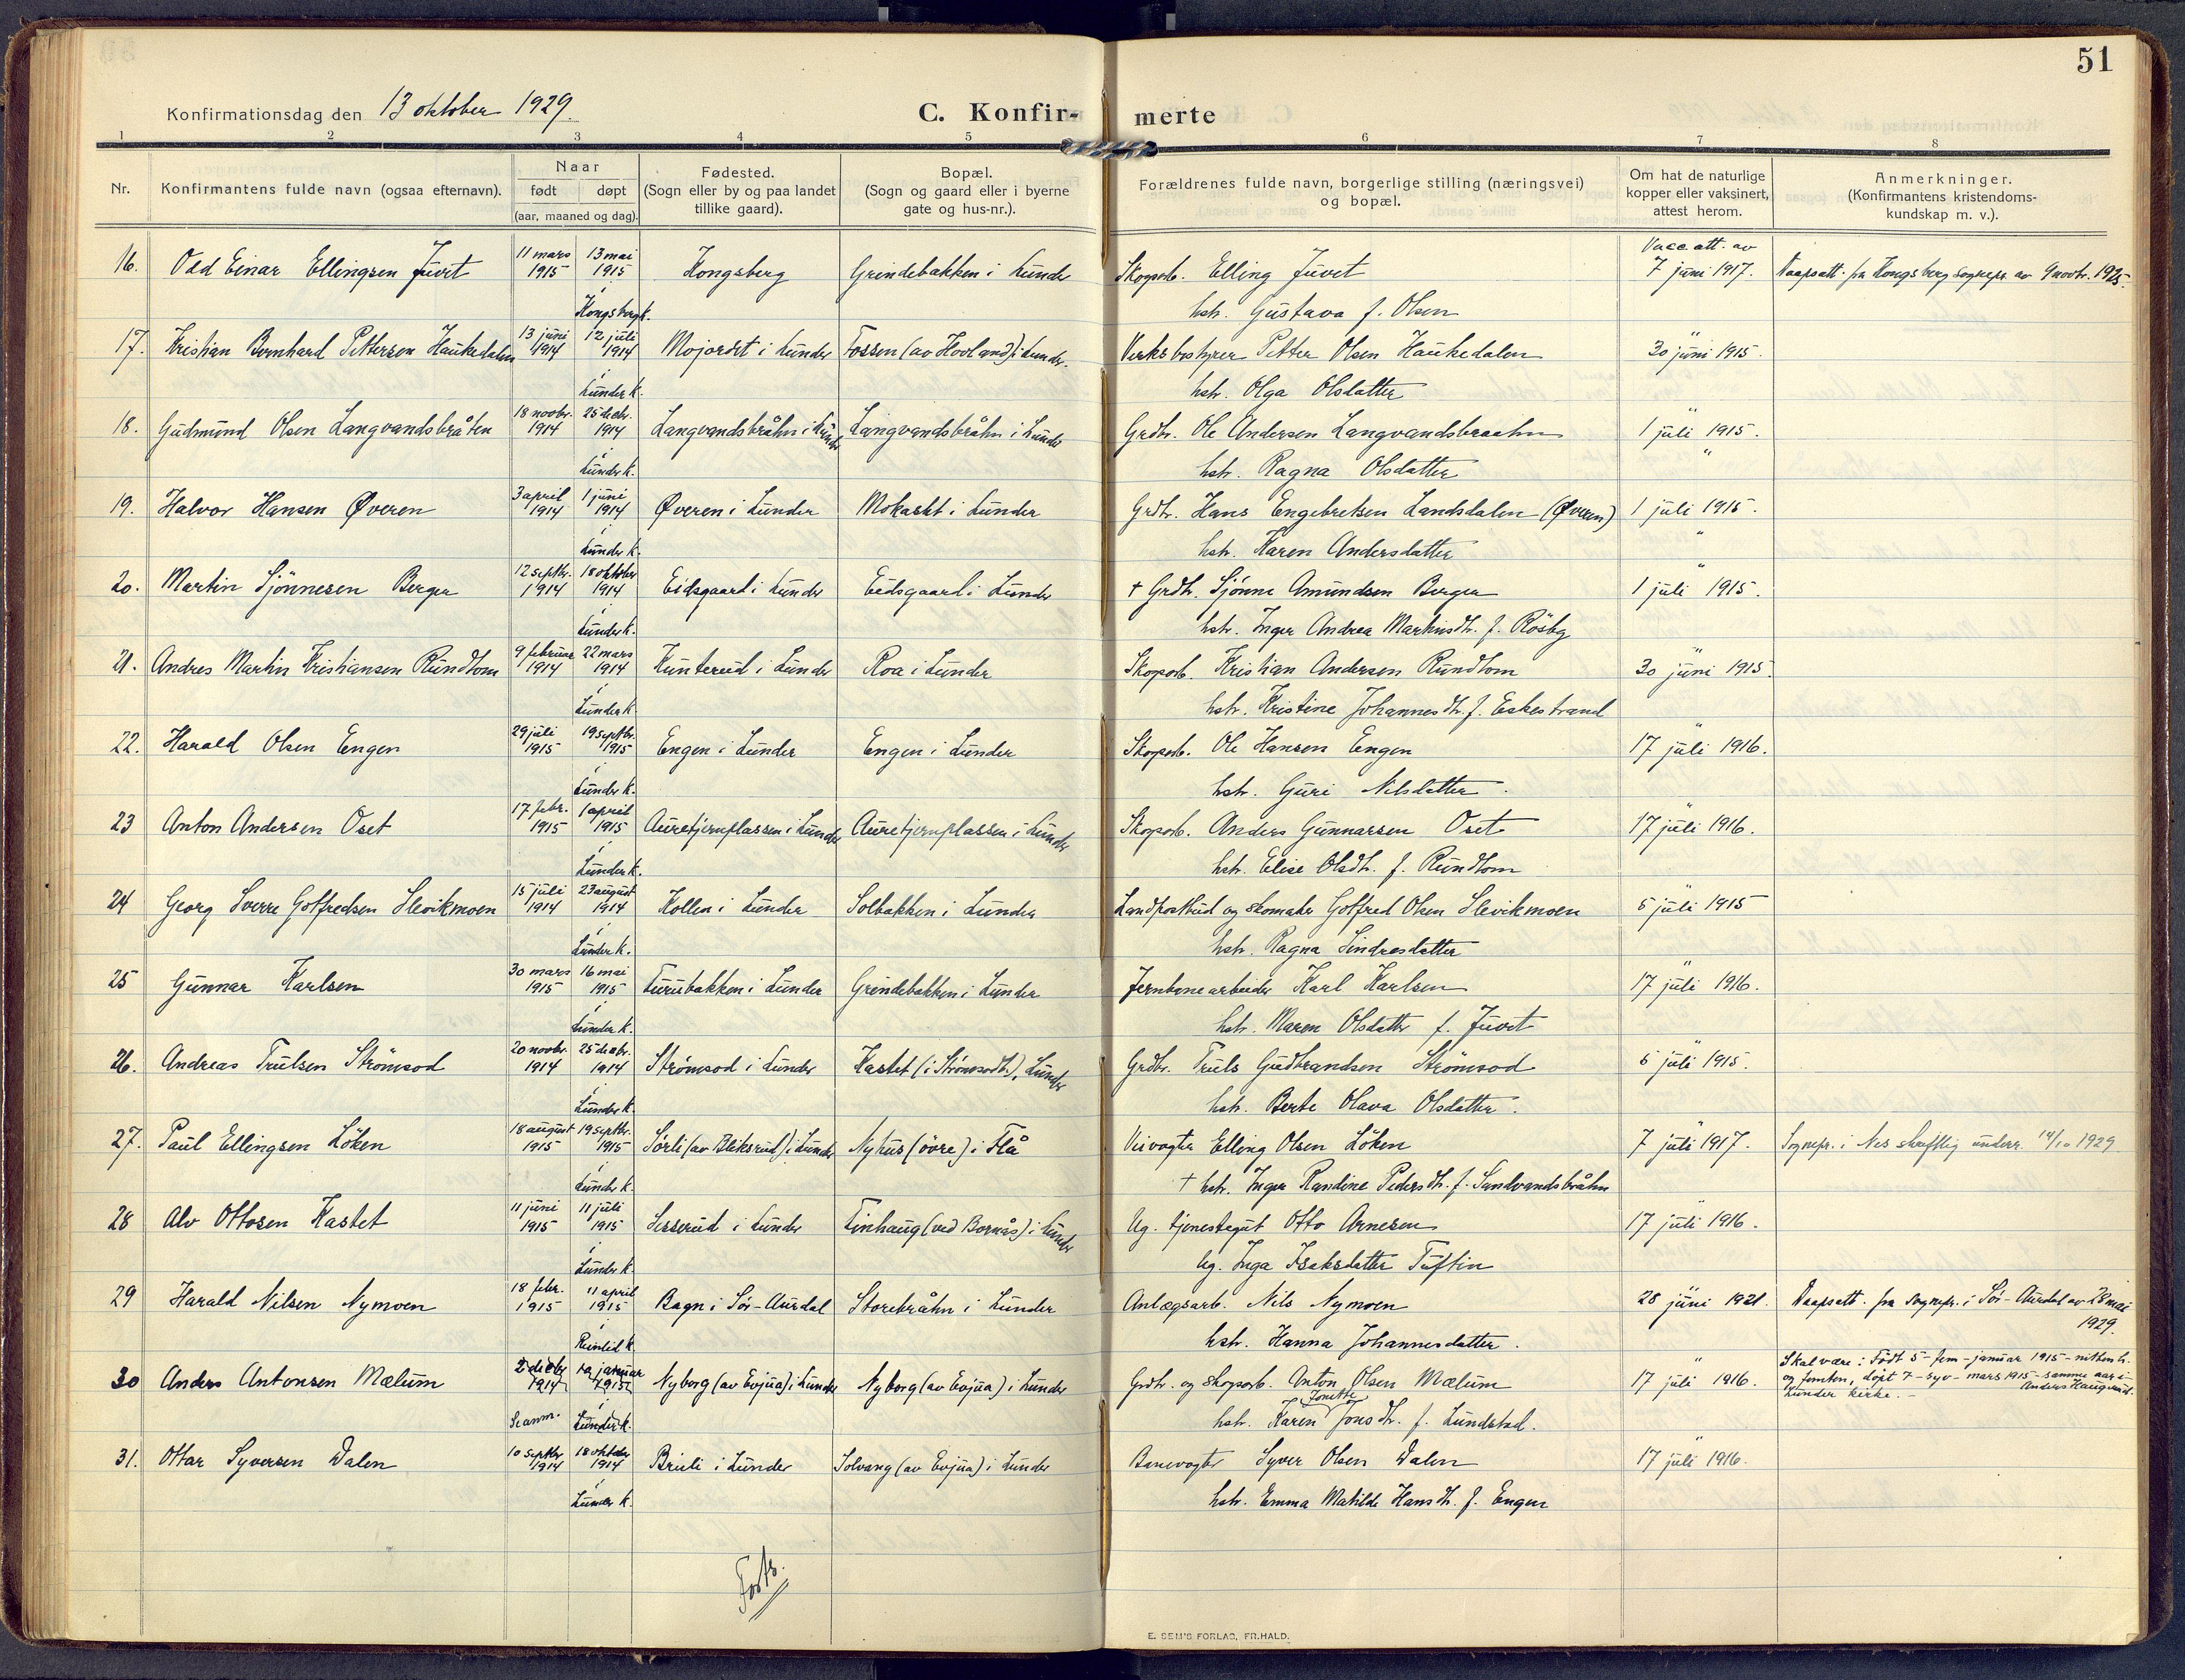 51
Konfirmationsdag den 13 oktober 1929.
C. Konfir- merte
1 2 3 4 5 6 7 8
Nr. Konfirmantens fulde navn (ogsaa efternavn). Naar født døpt (aar, maaned og dag). Fødested. (Sogn eller by og paa landet tillike gaard). Bopæl. (Sogn og gaard eller i byerne gate og hus-nr.). Forældrenes fulde navn, borgerlige stilling (næringsvei) og bopæl. Om hat de naturlige kopper eller vaksinert, attest herom. Anmerkninger. (Konfirmantens kristendoms-kundskap m. v.).
16. Odd Einar Ellingsen Juvet 11 mars 1915 13 mai 1915 Kongsberg Grindebakken i Lunder Skogsarb. Elling Juvet Vacc. att. av 7 juni 1917. Daapsatt. fra Kongsberg sognepr. av 9 novbr. 1925.
i Kongsberg k. hstr. Gustava f. Olsen
17. Kristian Bernhard Pettersen Haukedalen 13 juni 1914 12 juli 1914 Mojordet i Lunder Fossen (av Hovland) i Lunder. Verksbestyrer Petter Olsen Haukedalen " 30 juni 1915.
i Lunder k. hstr. Olga Olsdatter
18. Gudmund Olsen Langvandsbråten 18 novbr. 1914 25 decbr. 1914 Langvandsbråtn i Lunder Langvandsbråtn i Lunder Grdbr. Ole Andersen Langvandsbraatn " 1 juli 1915.
i Lunder k. hstr. Ragna Olsdatter
19. Halvor Hansen Øveren 3 april 1914 1 juni 1914 Øveren i Lunder Mokastet i Lunder Grdbr. Hans Engebretsen Landsdalen (Øveren) " 1 juli 1915.
i Lunder k. hstr. Karen Andersdatter
20. Martin Sjönnesen Berger 12 septbr. 1914 18 oktober 1914 Eidsgaard i Lunder Eidsgaard i Lunder + Grdbr. Sjönne Amundsen Berger " 1 juli 1915.
i Lunder k. hstr. Inger Andrea Martinsdtr. f. Rösby
21. Andres Martin Kristiansen Rundtom 9 februar 1914 22 mars 1914 Kunterud i Lunder Roa i Lunder Skogsarb. Kristian Andersen Rundtom " 30 juni 1915.
i Lunder k. hstr. Kristine Johannesdtr. f. Eskestrand
22. Harald Olsen Engen 29 juli 1915 19 septbr. 1915 Engen i Lunder Engen i Lunder Skogsarb. Ole Hansen Engen " 17 juli 1916.
i Lunder k. hstr. Guri Nilsdatter.
23 Anton Andersen Oset 17 febr. 1915 1 april 1915 Auretjernplassen i Lunder Auretjernplassen i Lunder Skogsarb. Anders Gunnarsen Oset " 17 juli 1916.
i Lunder k. hstr. Elise Olsdtr. f. Rundtom
24 Georg Sverre Gotfredsen Slevikmoen 15 juli 1914 23 august 1914 Kollen i Lunder Solbakken i Lunder Landpostbud og skomaker Gotfred Olsen Slevikmoen " 5 juli 1915
i Lunder k. hstr. Ragna Sindresdatter
25 Gunnar Karlsen 30 mars 1915 16 mai 1915 Turubakken i Lunder Grindebakken i Lunder Jernbanearbeider Karl Karlsen " 17 juli 1916.
i Lunder k. hstr. Maren Olsdatter f. Juvet
26. Andreas Trulsen Strömsod 20 novbr. 1914 25 decbr. 1914 Strömsod i Lunder Kastet (i Strömsodbr.), Lunder Grdbr. Truls Gudbrandsen Strömsod " 5 juli 1915.
i Lunder k. hstr. Berte Olava Olsdatter.
27. Paul Ellingsen Löken 18 august 1915 19 septbr. 1915 Sörli (av Bliksrud) i Lunder Nyhus (övre) i Flå Veivogter Elling Olsen Löken " 7 juli 1917. Sognepr. i Nes skriftlig underr. 14/10 1929
i Lunder k. + hstr. Inger Randine Pedersdtr. f. Sandvandsbråtn
28 Alv Ottosen Kastet 11 juni 1915 11 juli 1915 Sisserud i Lunder Tinhaug (ved Bornås) i Lunder Ug. tjenestegut Otto Arnesen " 17 juli 1916.
i Lunder k. Ug. Inga Isaksdatter Tuftin
29 Harald Nilsen Nymoen 18 febr. 1915 11 april 1915 Bagn i Sör-Aurdal Storebråtn i Lunder Anlægsarb. Nils Nymoen " 28 juni 1921. Daapsatt. fra Sognepr. i Sör-Aurdal av 28 mai 1929.
i Reinlid k. hstr. Hanna Johannesdatter.
30 Anders Antonsen Mælum 1914 januar 1915 Nyborg (av Evjua) i Lunder Nyborg (av Evjua) i Lunder Grdbr. og skogsarb. Anton Olsen Mælum " 17 juli 1916. Skal være: Født 5 - fem - januar 1915 - nitten h. og femten, døpt 7 - syv - mars 1915 - samme aar i Lunder kirke. - Anders Haugerud.
Se anm. i Lunder k. hstr. Karen Jonette Jonsdtr. f. Lundstad.
31. Ottar Syversen Dalen 10 septbr 1914 18 oktober 1914 Bruli i Lunder Solvang (av Evjua) i Lunder Banevogter Syver Olsen Dalen " 17 juli 1916.
i Lunder k. hstr. Emma Matilde Hansdtr. f. Engen
Forts.
E. SEM'S FORLAG, FR.HALD.